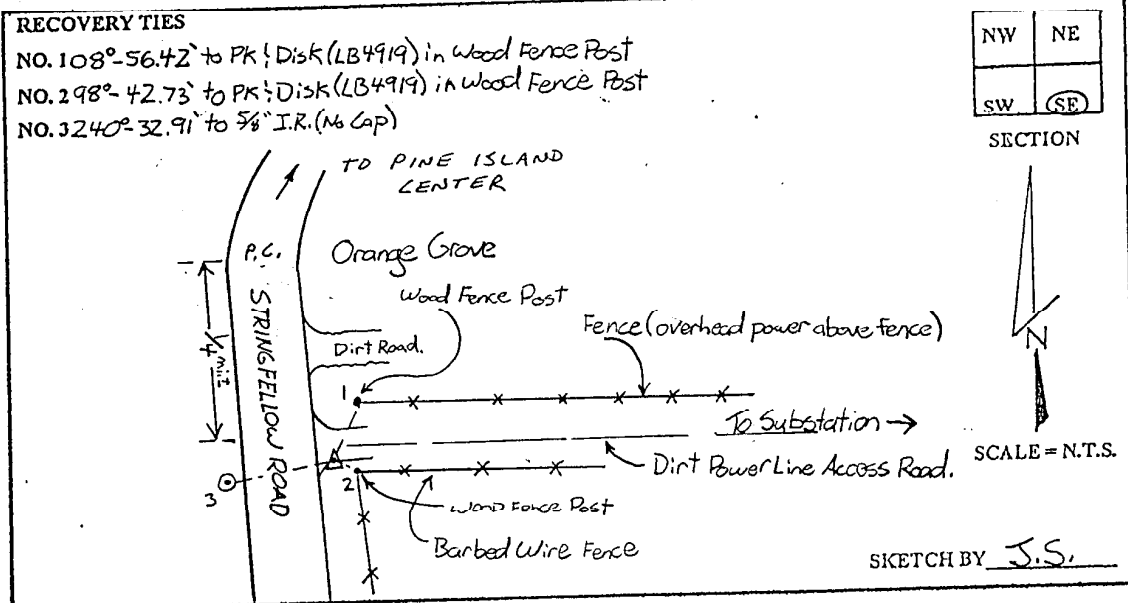 RECOVERY TIES
NO. 1 08°-56.42' to PK & Disk (LB4919) in Wood Fence Post
NO. 2 98°-42.73' to PK & Disk (LB4919) in Wood Fence Post
NO. 3 240°-32.91' to 5/8" I.R. (No Cap)
NW NE
SW SE
SECTION
TO PINE ISLAND
CENTER
P.C.
Orange Grove
Wood Fence Post
STRINGFELLOW ROAD
1/4 mi±
Dirt Road.
Fence (overhead power above fence)
N
1
To Substation →
SCALE = N.T.S.
Dirt Power Line Access Road.
2
3
Wood Fence Post
Barbed Wire Fence
SKETCH BY J.S.